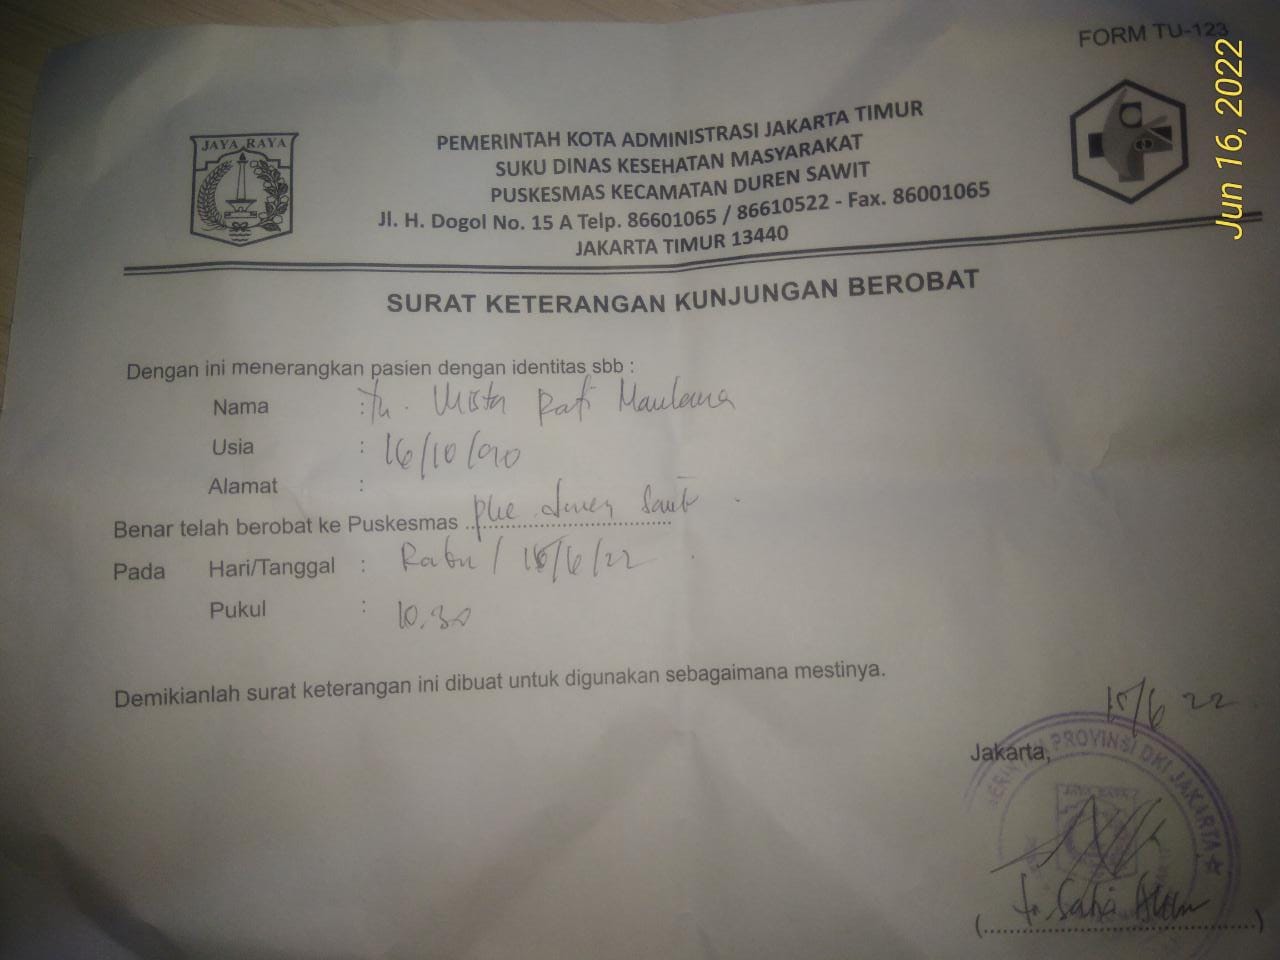 FORM TU-123
Jun 16, 2022
JAYA RAYA
PEMERINTAH KOTA ADMINISTRASI JAKARTA TIMUR
SUKU DINAS KESEHATAN MASYARAKAT
PUSKESMAS KECAMATAN DUREN SAWIT
Jl. H. Dogol No. 15 A Telp. 86601065 / 86610522 - Fax. 86001065
JAKARTA TIMUR 13440
SURAT KETERANGAN KUNJUNGAN BEROBAT
Dengan ini menerangkan pasien dengan identitas sbb :
Nama : Tn. Maulana
Usia : 16/10/90
Alamat :
Benar telah berobat ke Puskesmas Duren Sawit
Pada Hari/Tanggal : Rabu / 15/6/22
Pukul : 10.30
Demikianlah surat keterangan ini dibuat untuk digunakan sebagaimana mestinya.
15/6 22
Jakarta,
PROVINSI DKI JAKARTA
JAYA RAYA